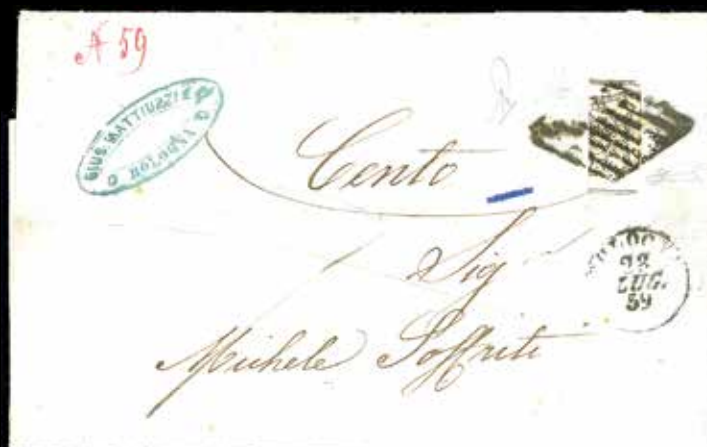 A 59
GIUS. MATTIUZZI
BOLOGNA
Cento
Sig
Michele Soffriti
22
LUG.
59